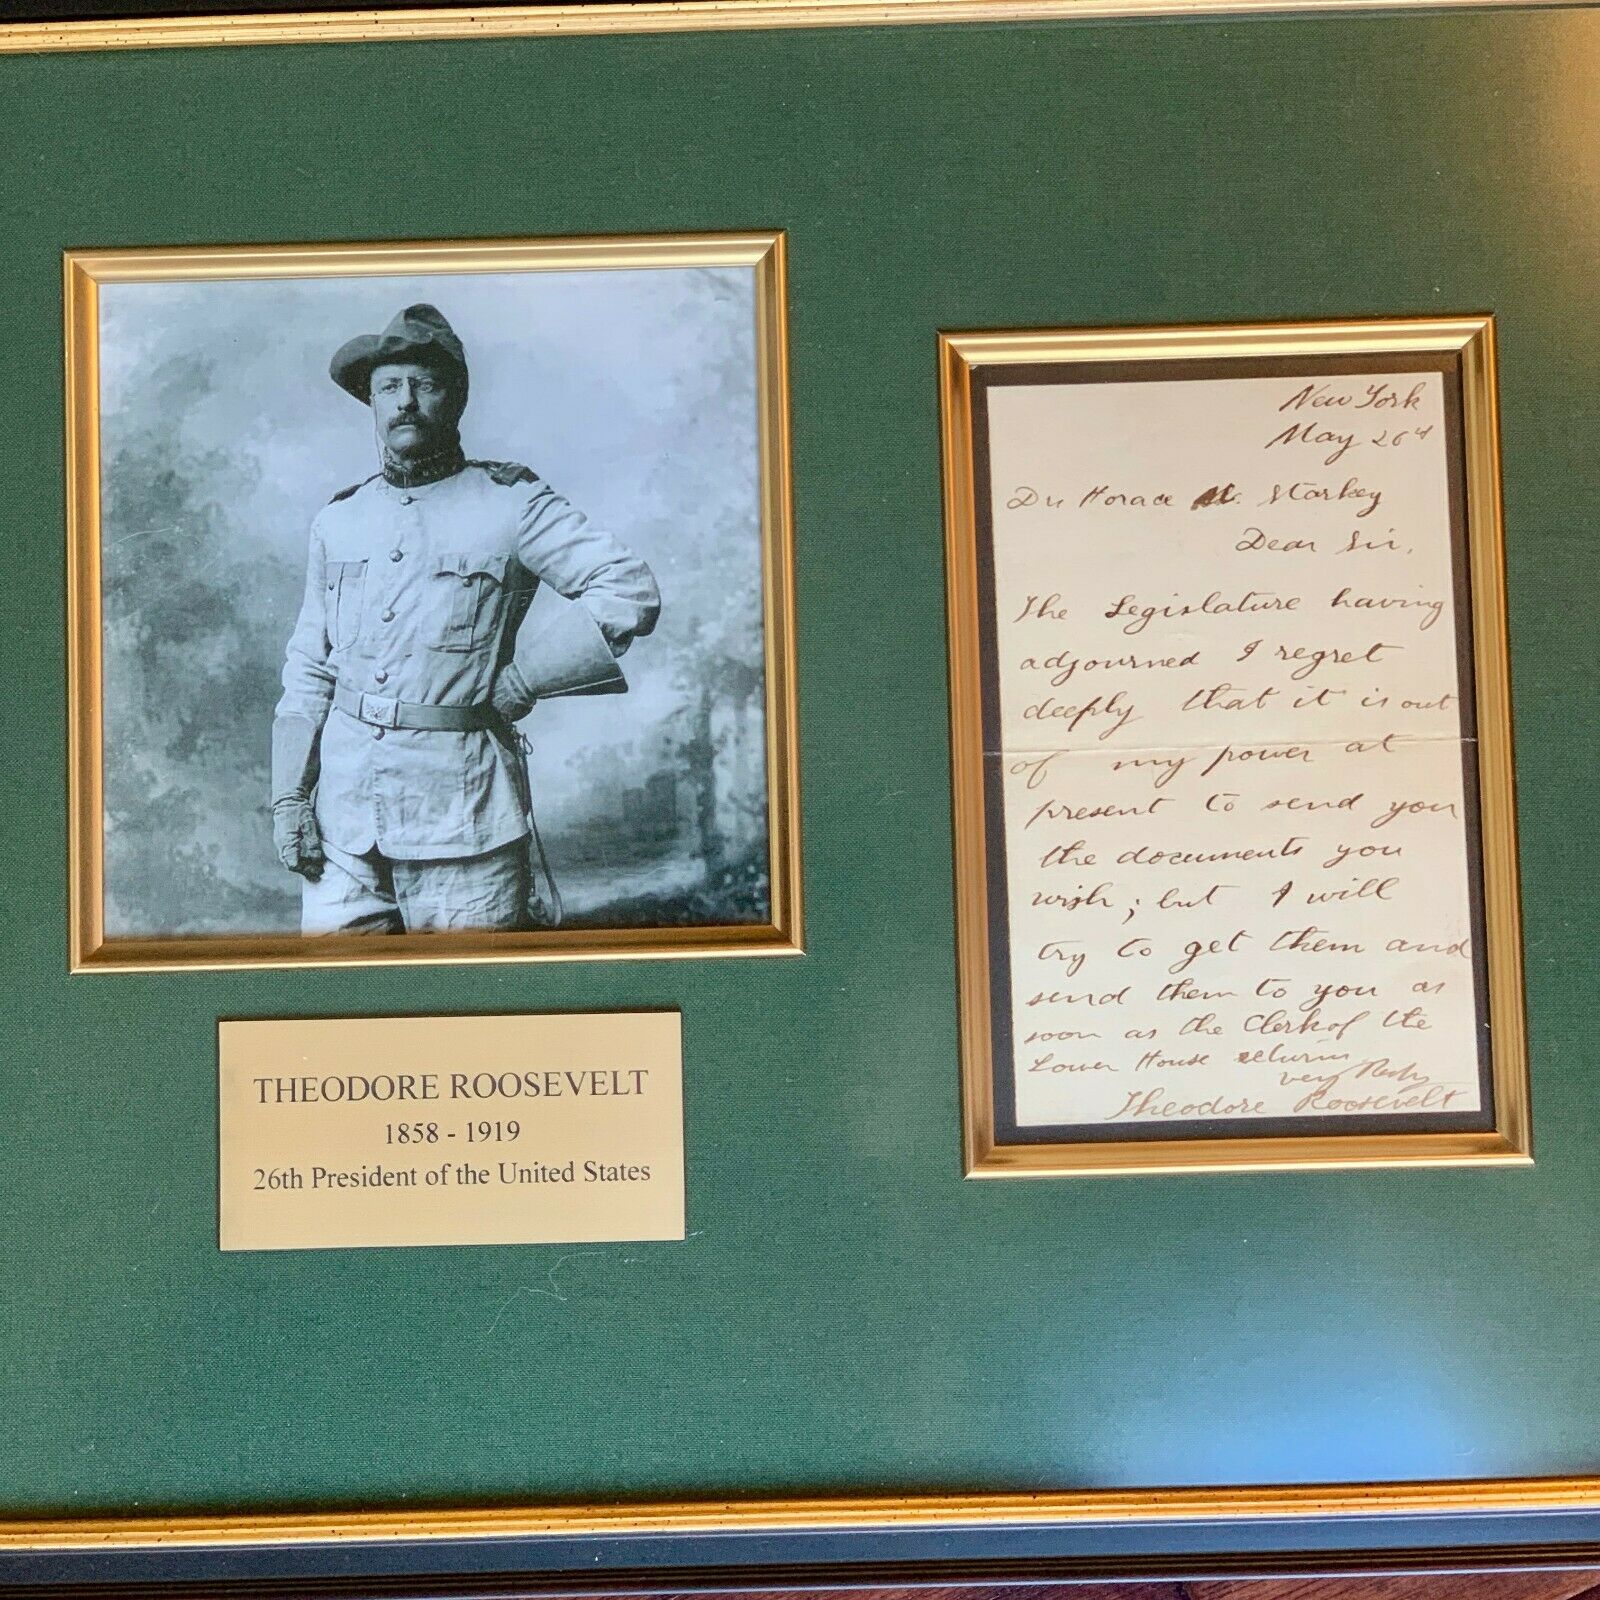 THEODORE ROOSEVELT
1858 - 1919
26th President of the United States
New York
May 26th
Dr Horace M. Starkey
Dear Sir,
The Legislature having
adjourned I regret
deeply that it is out
of my power at
present to send you
the documents you
wish; but I will
try to get them and
send them to you as
soon as the Clerk of the
Lower House returns
very
Theodore Roosevelt